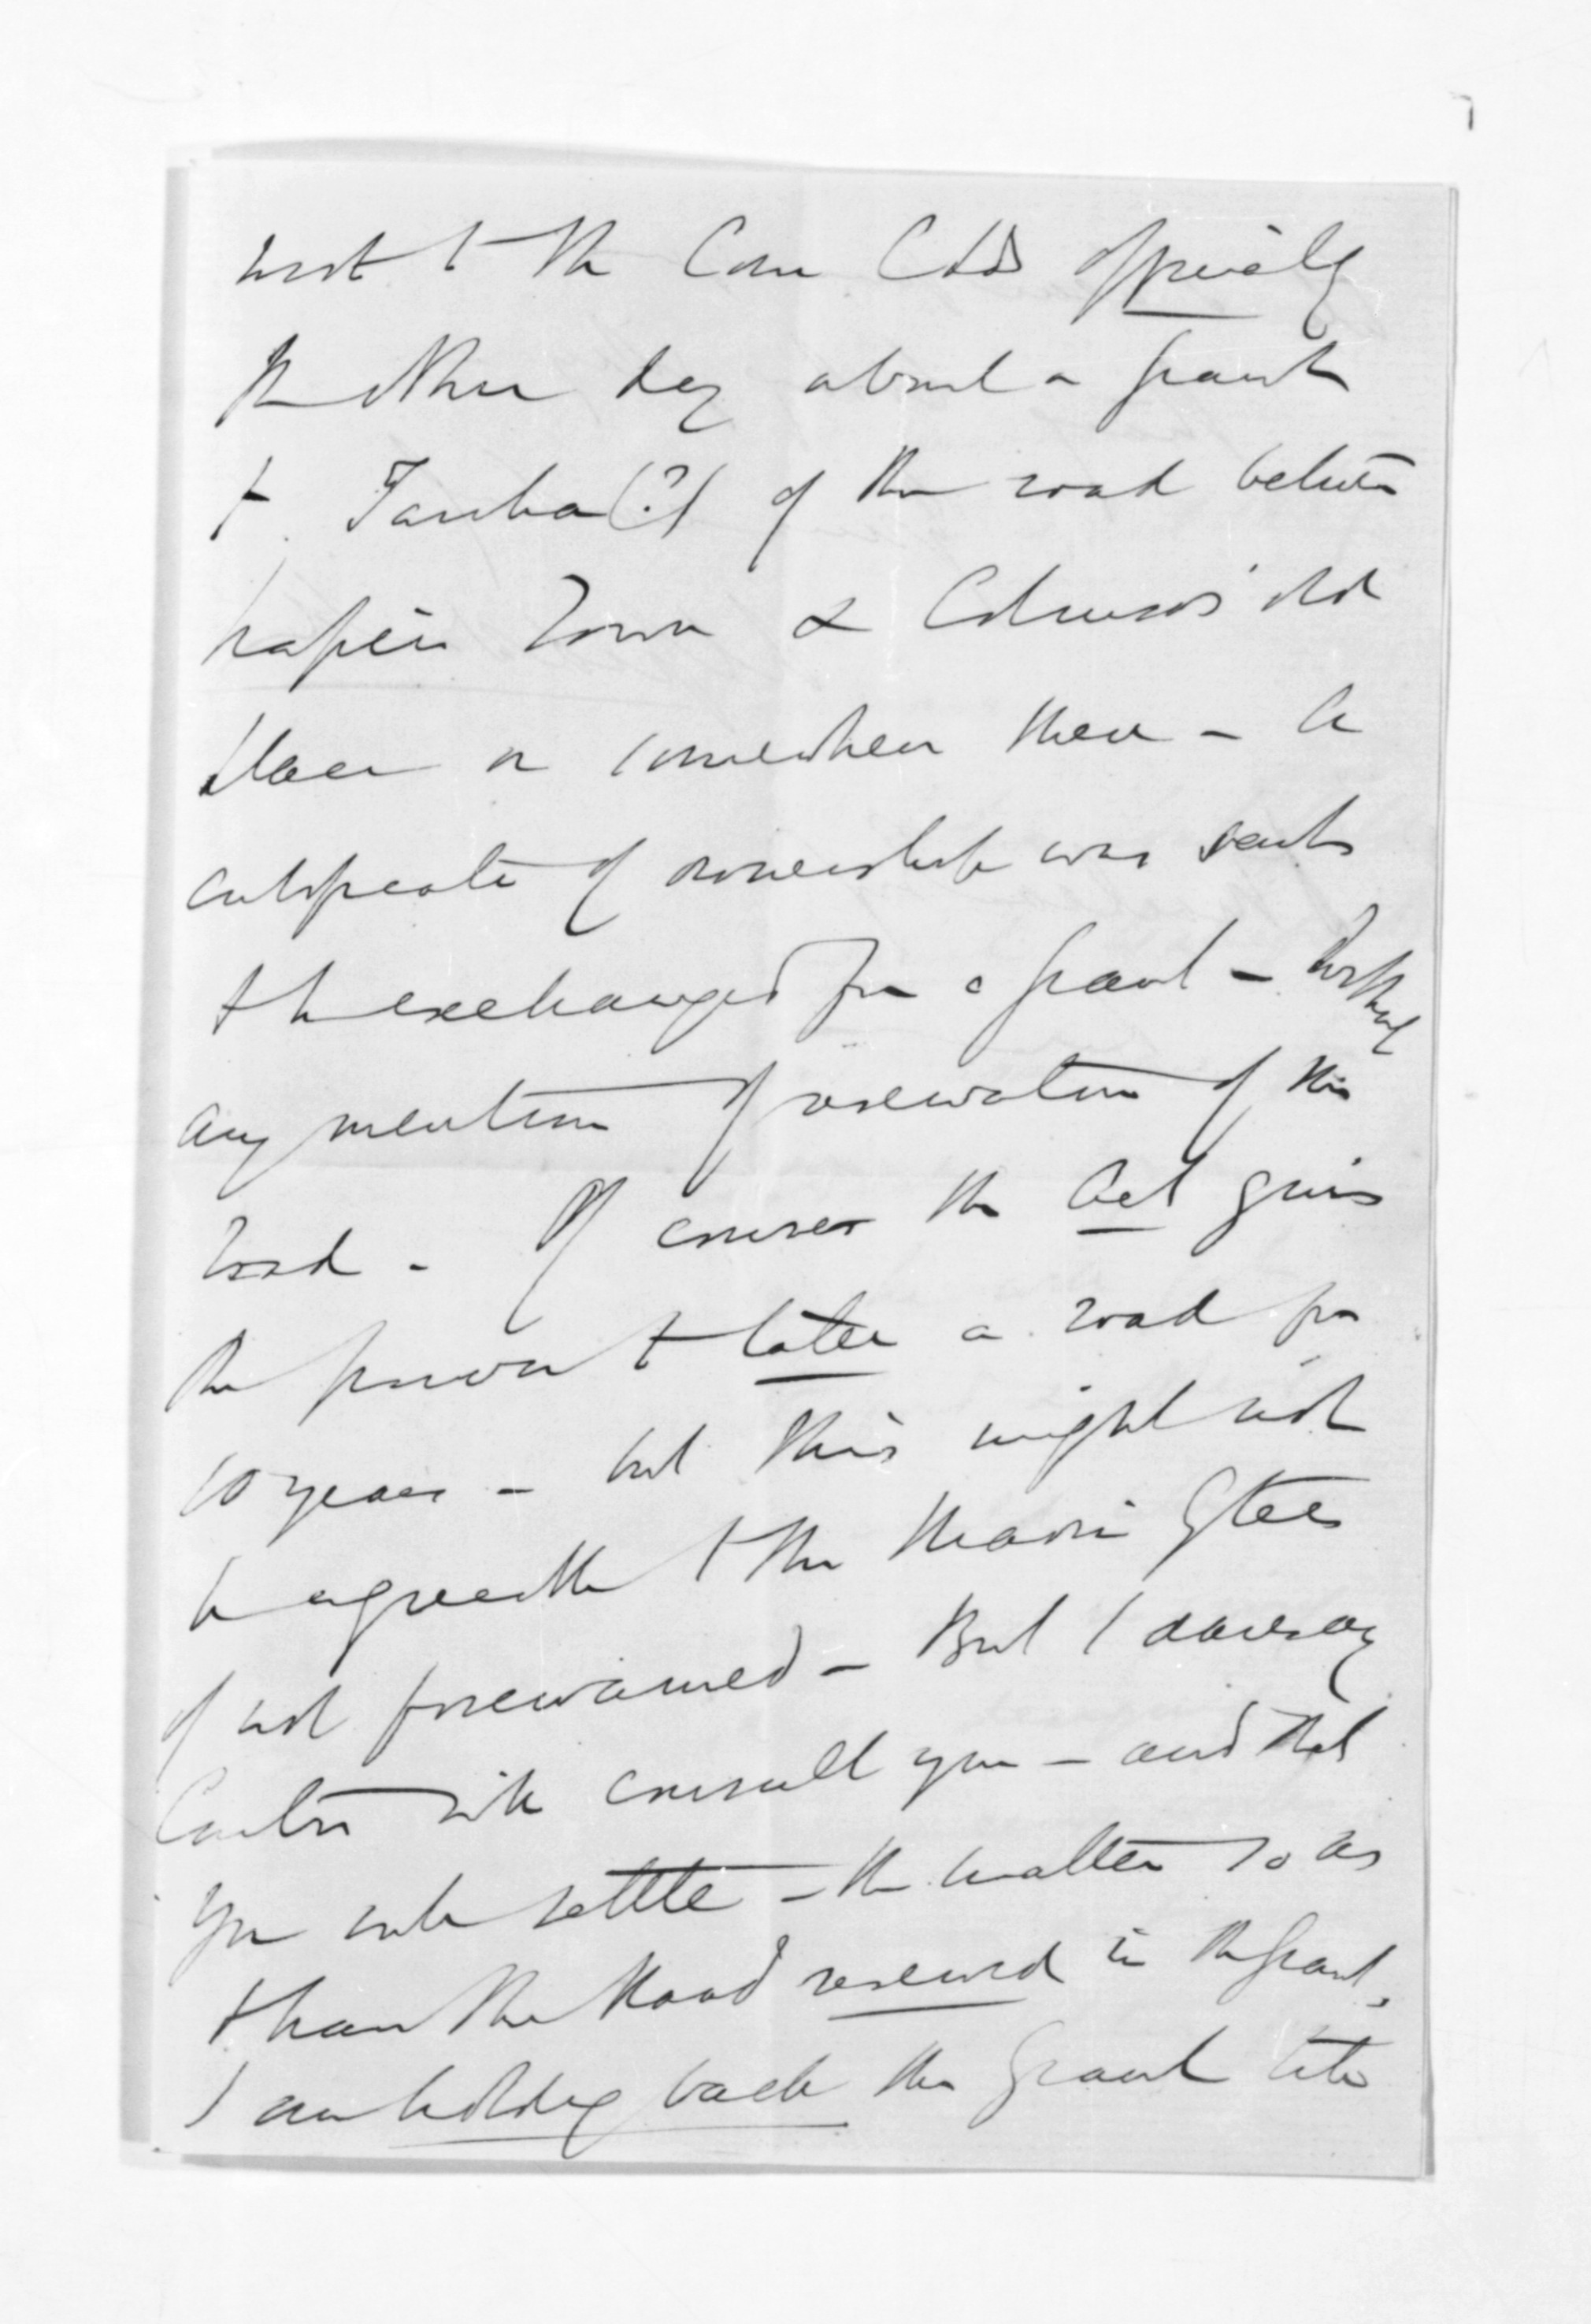 wrote to the Com Cold officially
the other day about a grant
to Tareha (?) of the road between
Napier Town & Colenso's old
place or somewhere there - A
certificate of ownership was sent
to be exchanged for a grant - without
any mention of reservation of this
road - Of course the Act gives
the power to take a road for
10 years - but this might not
be agreeable to the Maori Gtees
if not forewarned - But I daresay
will consult you - and that
you will settle - the matter so as
to have the Road reserved in the grant.
I am holding back the Grant till